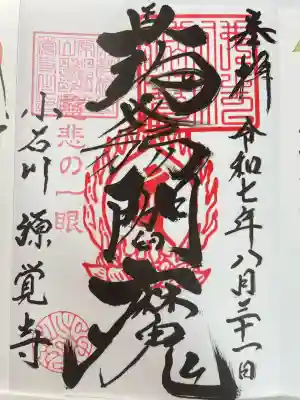 奉拝 令和七年八月三十一日
蒟蒻閻魔
慈悲の一眼
小石川 源覚寺